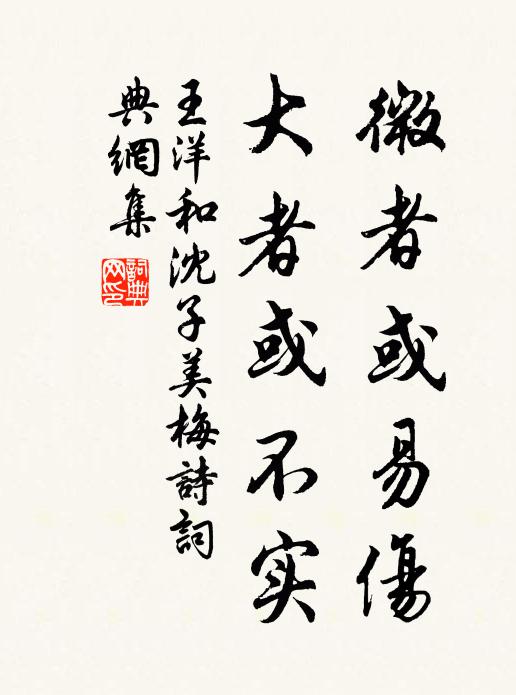 微者或易傷
大者或不实
王洋和沈子美梅詩詞
典網集
詞典
网印